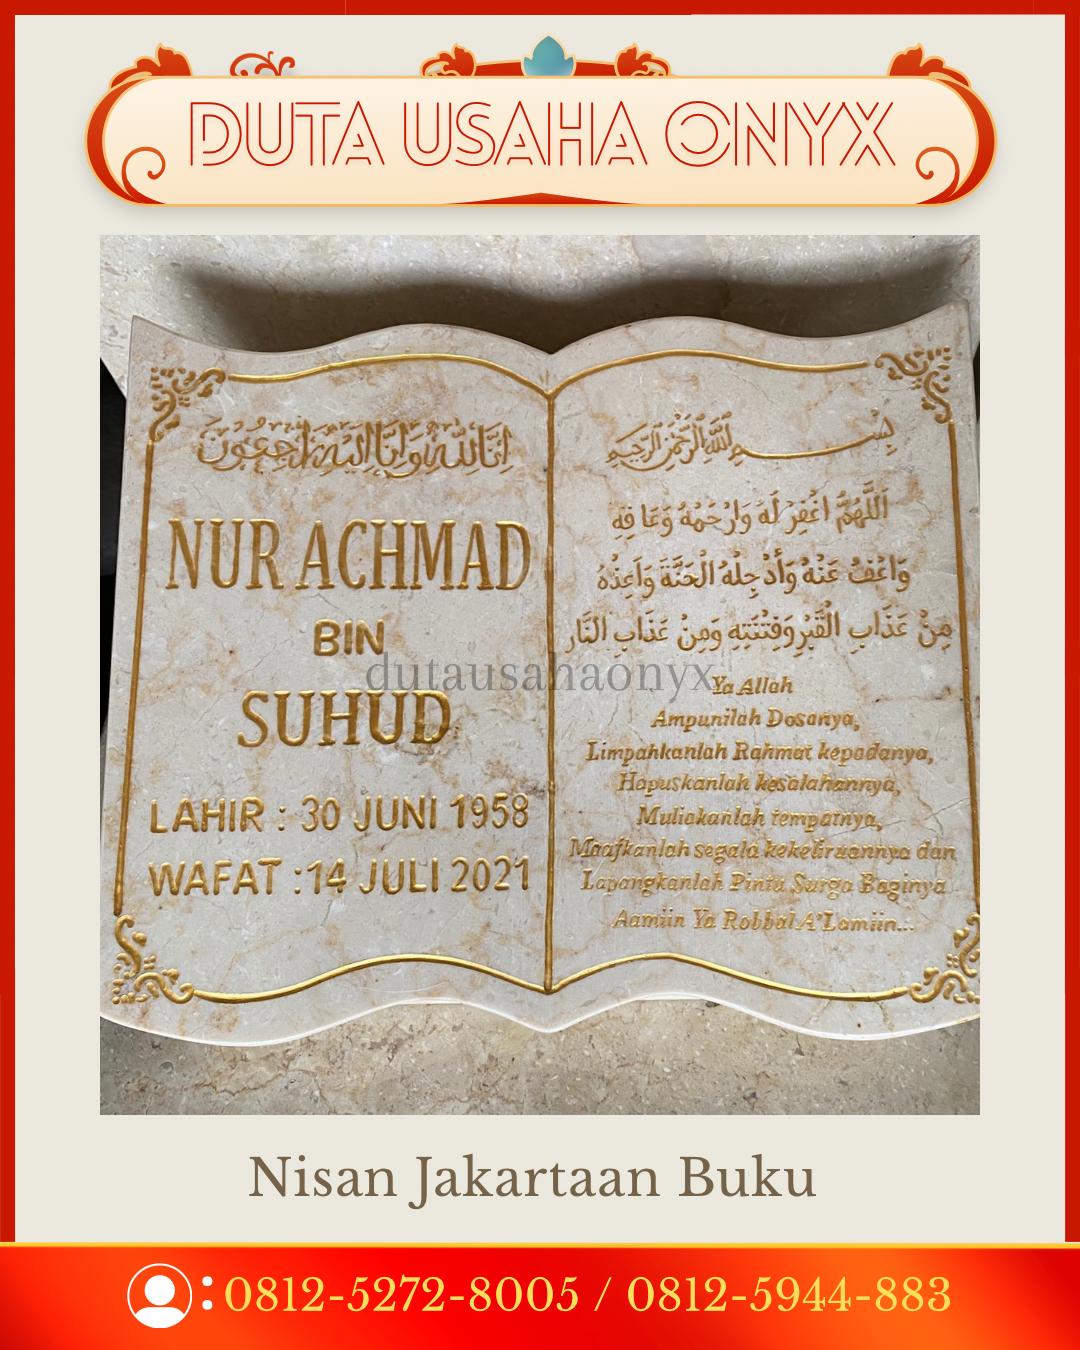 DUTA USAHA ONYX
اِنَّا لِلّٰهِ وَاِنَّا اِلَيْهِ رَاجِعُوْنَ
NUR ACHMAD
BIN
SUHUD
LAHIR : 30 JUNI 1958
WAFAT : 14 JULI 2021
بِسْمِ اللّٰهِ الرَّحْمٰنِ الرَّحِيْمِ
اَللّٰهُمَّ اغْفِرْ لَهُ وَارْحَمْهُ وَعَا فِهِ
وَاعْفُ عَنْهُ وَأَدْ جِلْهُ الْحَنَّةَ وَاَعِذْهُ
مِنْ عَذَابِ الْقَبْرِ وَفِتْنَتِهِ وَمِنْ عَذَابِ النَّار
Ya Allah
Ampunilah Dosanya,
Limpahkanlah Rahmat kepadanya,
Hapuskanlah kesalahannya,
Muliakanlah tempatnya,
Maafkanlah segala kekeliruannya dan
Lapangkanlah Pintu Surga Baginya
Aamiin Ya Robbal A'Lamiin...
dutausahaonyx
Nisan Jakartaan Buku
: 0812-5272-8005 / 0812-5944-883